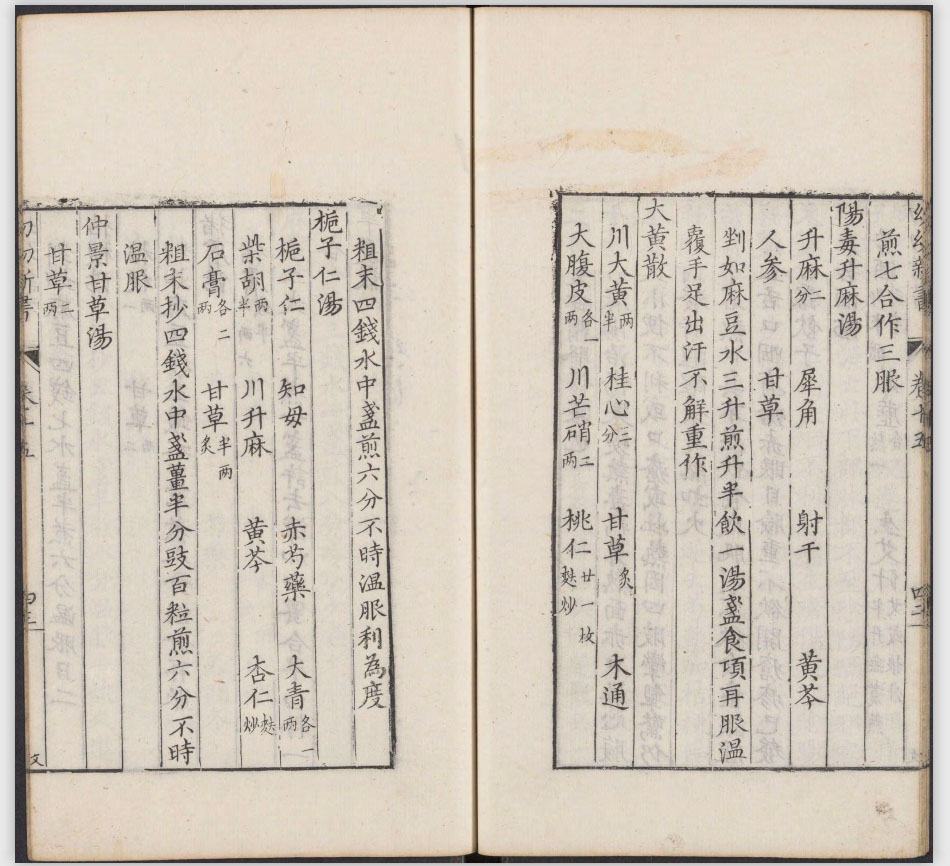 幼幼新書 卷十五 四二
煎七合作三服
陽毒升麻湯
升麻二分 犀角 射干 黄芩
人參 甘草
剉如麻豆水三升煎升半飲一湯盞食頃再服温
覆手足出汗不解重作
大黄散
川大黄兩半 桂心三分 甘草炙 木通
大腹皮各一兩 川芒硝二兩 桃仁廿一枚麩炒
粗末四錢水中盞煎六分不時温服利為度
梔子仁湯
梔子仁 知母 赤芍藥 大青各一兩
柴胡兩半 川升麻 黄芩 杏仁麩炒
石膏各二兩 甘草半兩炙
粗末抄四錢水中盞薑半分豉百粒煎六分不時
温服
仲景甘草湯
甘草二兩
幼幼新書 卷十五 四三